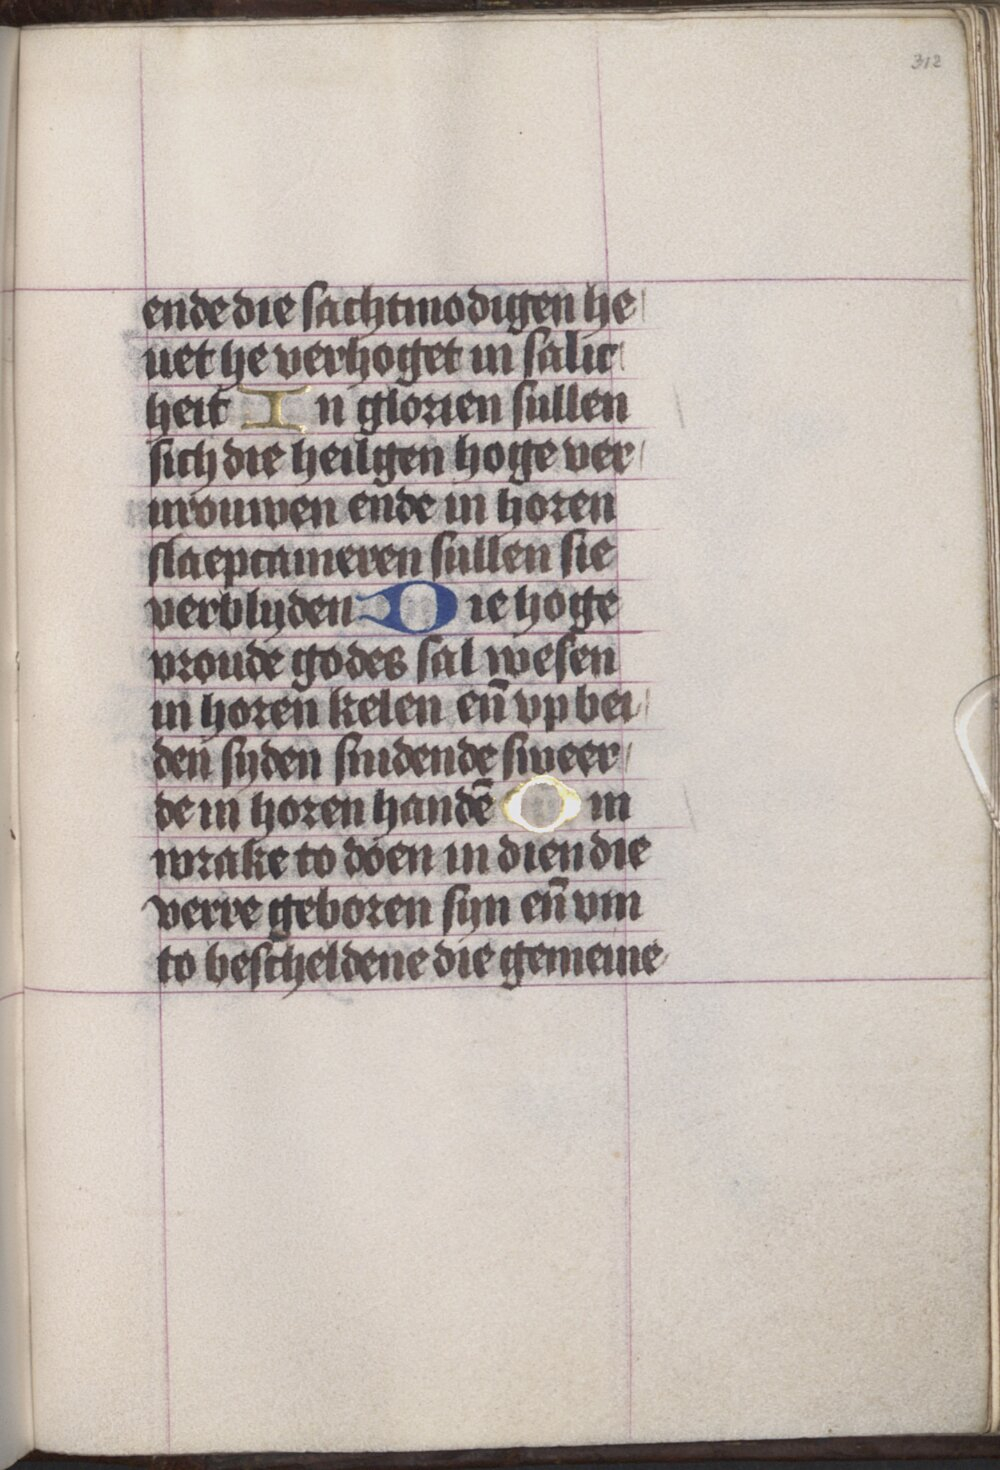 312
ende die sachtmodigen he
uet he verhoget in salic
heit In glorien sullen
sich die heiligen hoge ver
urouwen ende in horen
slaepcameren sullen sie
verblyden Die hoge
vroude godes sal wesen
in horen kelen en̄ vp bei
den syden snidende sweer
de in horen handē Om
wrake to doen in dien die
verre geboren syn en̄ vm
to bescheldene die gemeine